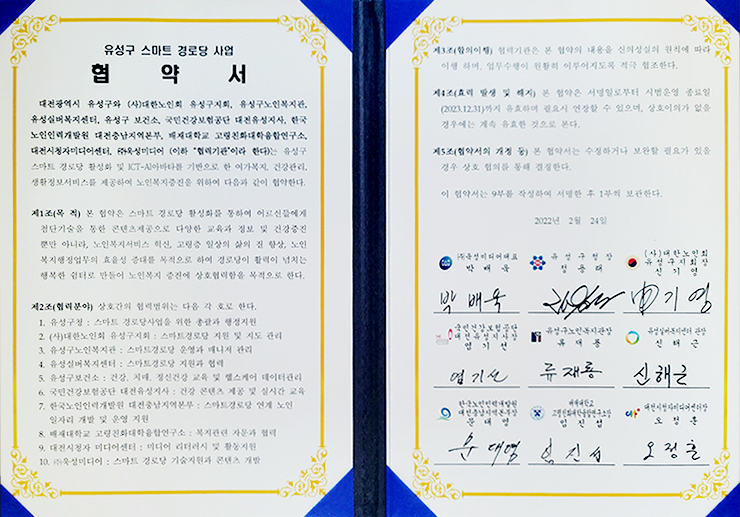 유성구 스마트 경로당 사업
협 약 서
대전광역시 유성구와 (사)대한노인회 유성구지회, 유성구노인복지관,
유성실버복지센터, 유성구 보건소, 국민건강보험공단 대전유성지사, 한국
노인인력개발원 대전충남지역본부, 배재대학교 고령친화대학융합연구소,
대전시청자미디어센터, ㈜옥성미디어 (이하 "협력기관"이라 한다)는 유성구
스마트 경로당 활성화 및 ICT-AI아바타를 기반으로 한 여가복지, 건강관리,
생활정보서비스를 제공하여 노인복지증진을 위하여 다음과 같이 협약한다.
제1조(목 적) 본 협약은 스마트 경로당 활성화를 통하여 어르신들에게
첨단기술을 통한 콘텐츠제공으로 다양한 교육과 정보 및 건강증진
뿐만 아니라, 노인복지서비스 혁신, 고령층 일상의 삶의 질 향상, 노인
복지행정업무의 효율성 증대를 목적으로 하여 경로당이 활력이 넘치는
행복한 쉼터로 만들어 노인복지 증진에 상호협력함을 목적으로 한다.
제2조(협력분야) 상호간의 협력범위는 다음 각 호로 한다.
1. 유성구청 : 스마트 경로당사업을 위한 총괄과 행정지원
2. (사)대한노인회 유성구지회 : 스마트경로당 지원 및 지도 관리
3. 유성구노인복지관 : 스마트경로당 운영과 매니저 관리
4. 유성실버복지센터 : 스마트경로당 지원과 협력
5. 유성구보건소 : 건강, 치매, 정신건강 교육 및 헬스케어 데이터관리
6. 국민건강보험공단 대전유성지사 : 건강 콘텐츠 제공 및 실시간 교육
7. 한국노인인력개발원 대전충남지역본부 : 스마트경로당 연계 노인
일자리 개발 및 운영 지원
8. 배재대학교 고령친화대학융합연구소 : 복지관련 자문과 협력
9. 대전시청자 미디어센터 : 미디어 리터러시 및 활동지원
10. ㈜옥성미디어 : 스마트 경로당 기술지원과 콘텐츠 개발
제3조(합의이행) 협력기관은 본 협약의 내용을 신의성실의 원칙에 따라
이행 하며, 업무수행이 원활히 이루어지도록 적극 협조한다.
제4조(효력 발생 및 해지) 본 협약은 서명일로부터 시범운영 종료일
(2023.12.31)까지 유효하며 필요시 연장할 수 있으며, 상호이의가 없을
경우에는 계속 유효한 것으로 본다.
제5조(협약서의 개정 등) 본 협약서는 수정하거나 보완할 필요가 있을
경우 상호 협의를 통해 결정한다.
이 협약서는 9부를 작성하여 서명한 후 1부씩 보관한다.
2022년 2월 24일
㈜옥성미디어대표
박 배 옥
유 성 구 청 장
정 용 래
(사)대한노인회
유성구지회장
신 기 영
박배옥
신기영
국민건강보험공단
대전유성지사장
염 기 선
유성구노인복지관장
류 재 룡
유성실버복지센터 관장
신 해 근
염기선
류재룡
신해근
한국노인인력개발원
대전충남지역본부장
문 대 영
배재대학교
고령친화대학융합연구소장
임 진 섭
대전시청자미디어센터장
오 정 훈
문대영
임진섭
오정훈